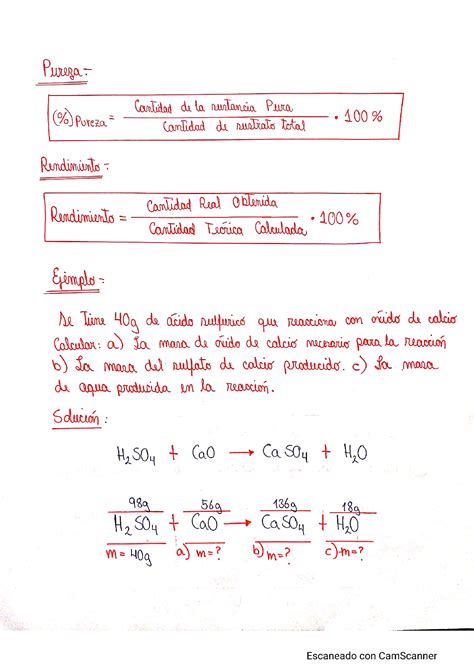 Pureza:-
(%) Pureza = Cantidad de la sustancia Pura / Cantidad de sustrato total · 100 %
Rendimiento:-
Rendimiento = Cantidad Real Obtenida / Cantidad Teórica Calculada · 100%
Ejemplo:-
Se Tiene 40g de ácido sulfurico que reacciona con óxido de calcio
Calcular: a) La masa de óxido de calcio necesario para la reacción
b) La masa del sulfato de calcio producido. c) La masa
de agua producida en la reacción.
Solución:
H₂SO₄ + CaO → CaSO₄ + H₂O
98g 56g 136g 18g
H₂SO₄ + CaO → CaSO₄ + H₂O
m = 40g a) m=? b) m=? c) m=?
Escaneado con CamScanner